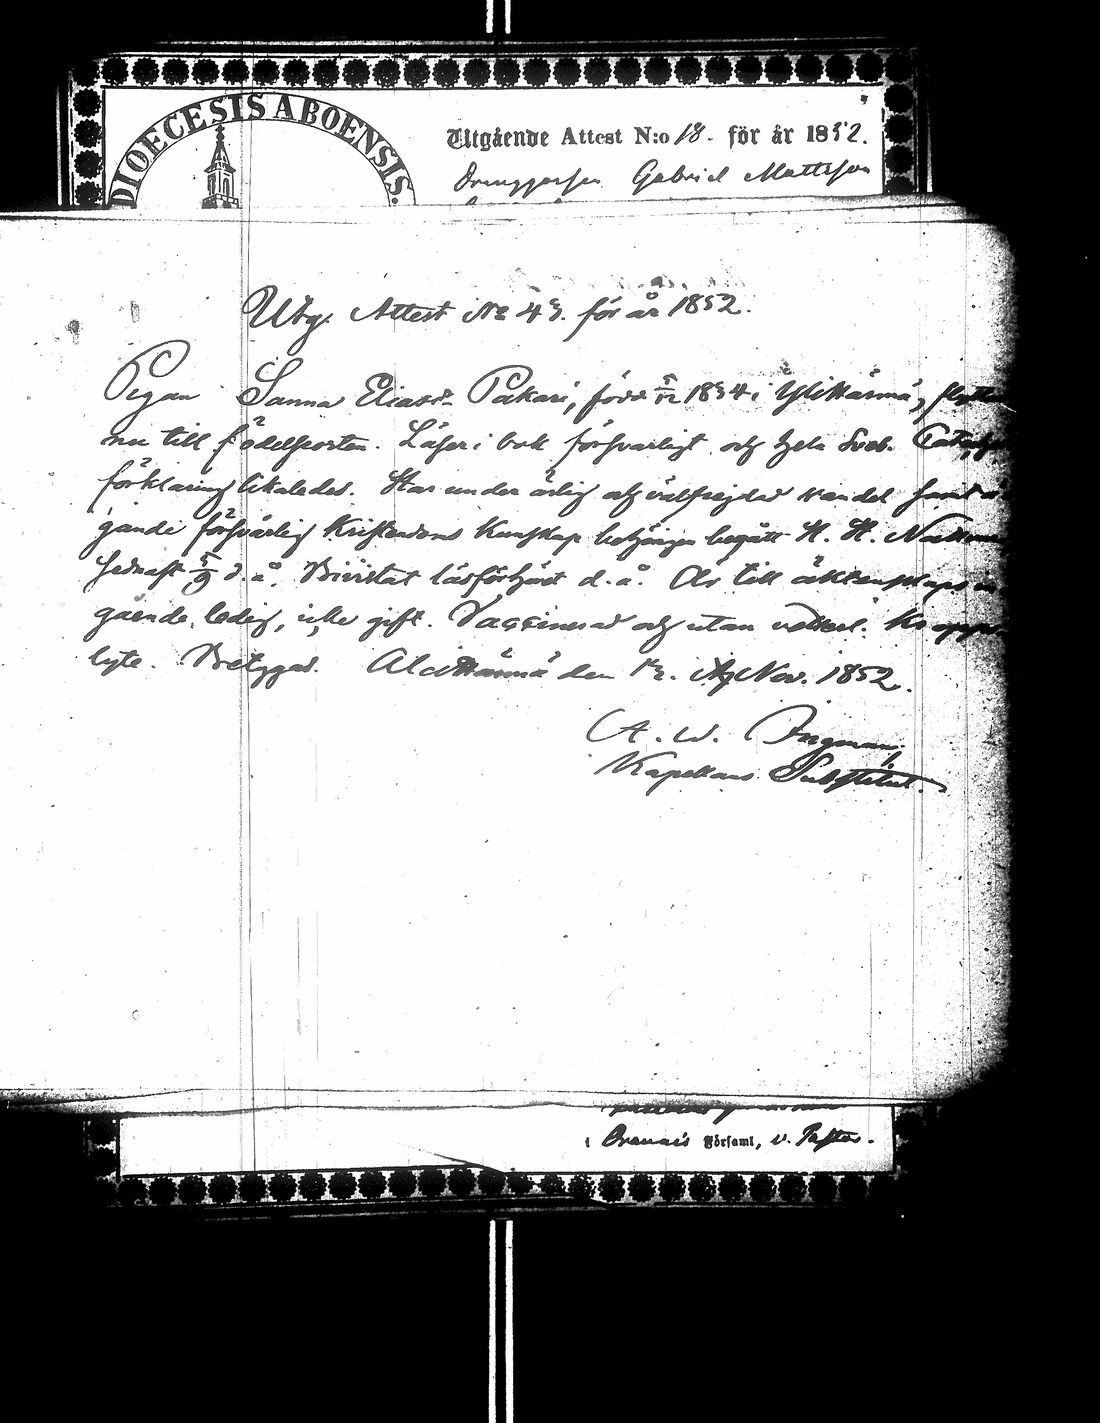 DIOECESIS ABOENSIS.
Utgående Attest N:o 18. för år 1852.
Drenggossen Gabriel Mattsson
Utg. Attest No 43. för år 1852.
Pigan Sanna Eliasdr Pakari, född 5/12 1834 i Ylikärmä, flyttar
nu till födelseorten. Läser i bok försvarligt och hela Sveb.
förklaring likaledes. Har under ärlig och välfrejdad vandel samt
gande försvarlig Kristendoms Kunskap behörigen begått H. H. Nattvard
sednast 5/9 d. å. Bivistat läsförhöret d. å. Är till äktenskaps in
gående ledig, icke gift. Vaccinerad och utan
lyte. Betygas. Alakärmä den Nov. 1852.
A. W. Ingman,
Kapellans Substitut.
i Oravais Församl, v. Pastor.